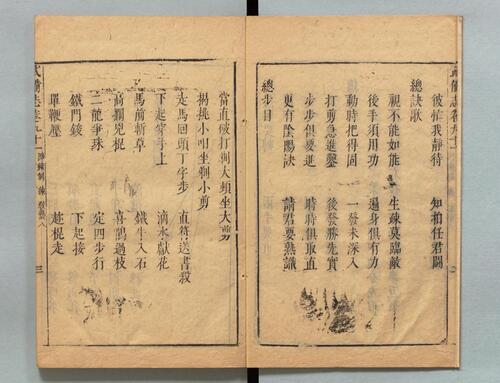 彼忙我靜待 知拍任君鬪
總訣歌
視不能如能 生疎莫臨敵
後手須用功 遍身俱有力
動時把得固 一發未深入
打剪急進鑿 後發勝先實
步步俱要進 時時俱取直
更有陰陽訣 請君要熟識
總步目
武備志卷九十一
當直破打剃大頭坐大剪
揭挑小呾坐剃小剪
走馬回頭丁字步 直符送書殺
下起穿手上 滴水獻花
馬前斬草 鐵牛入石
高攔兇棍 喜鵲過枝
二龍爭珠 定四步行
鐵門鈙 下起接
單鞭壓 趕棍走
武備志卷九十一
三